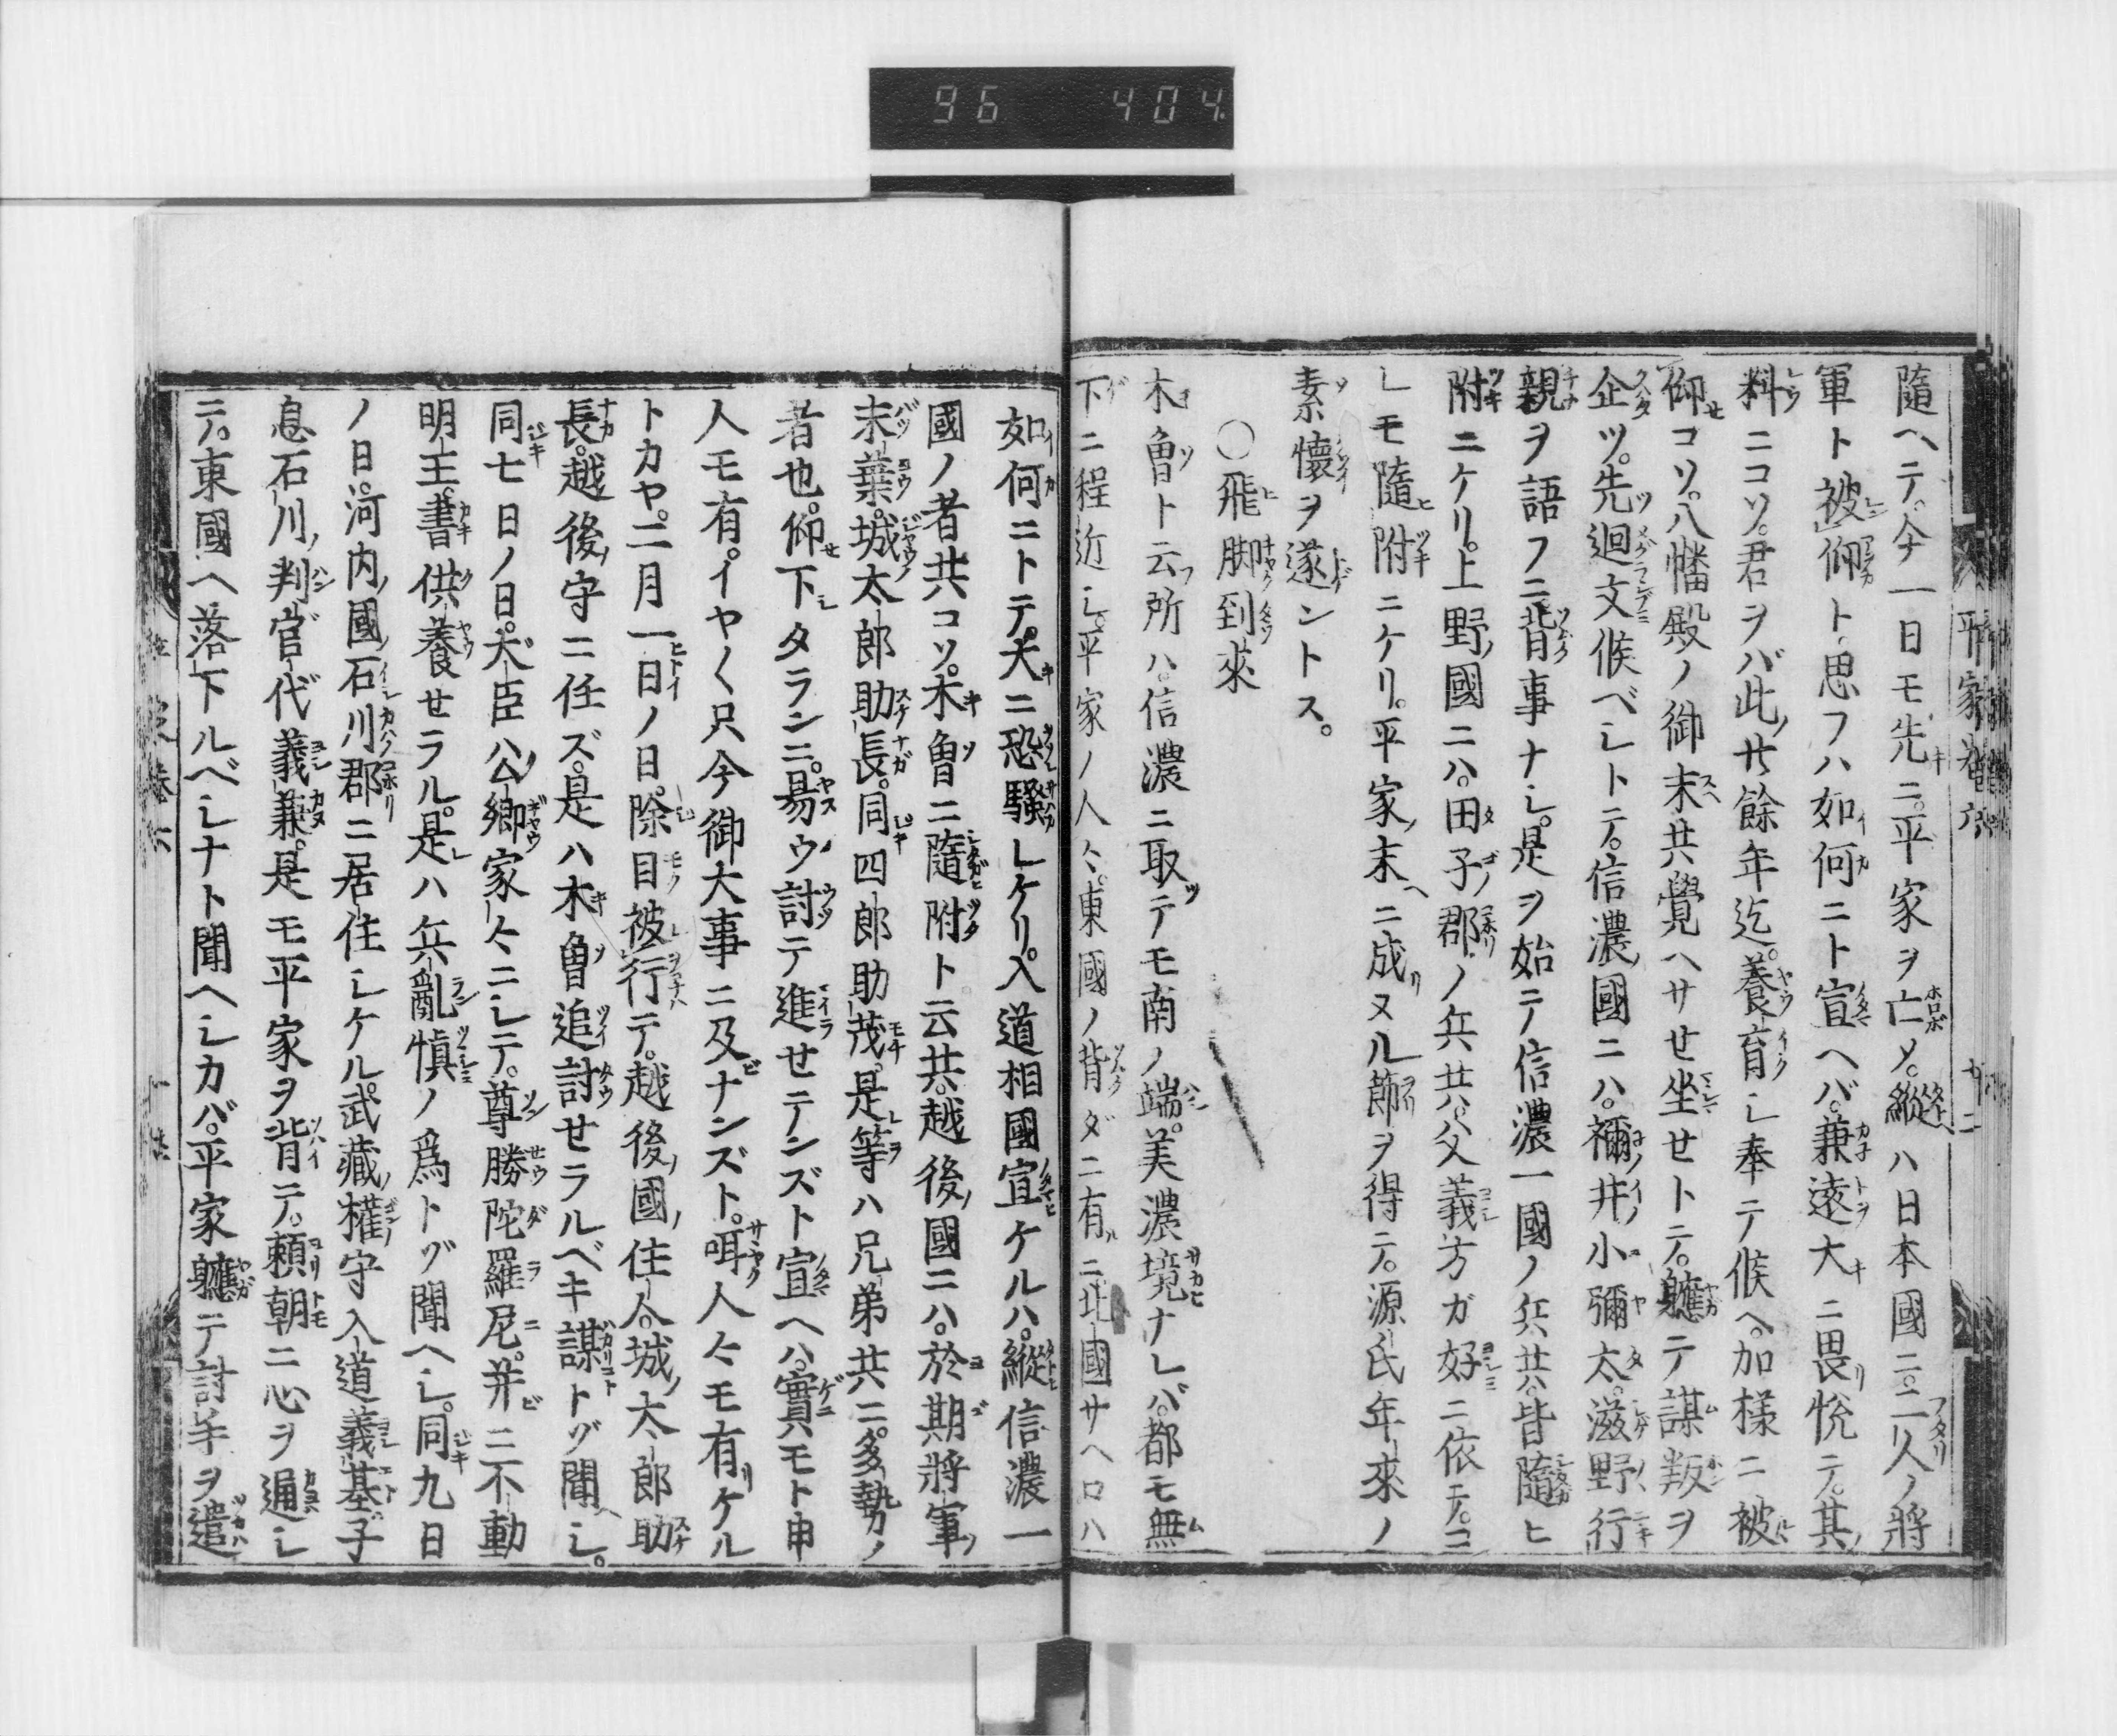 96 404
隨ヘテ。今一日モ先ニ。平家ヲ亡メ。縱ハ日本國ニ。二人ノ將
軍ト被仰ト思フハ如何ニト宣ヘバ。兼遠大ニ畏悦テ。其
料ニコソ。君ヲバ此廿餘年迄。養育シ奉テ候ヘ。加樣ニ被
仰コソ。八幡殿ノ御末共覺ハサセ坐セトテ。軈テ謀叛ヲ
企ツ。先迴文候ベシトテ。信濃國ニハ。禰井小彌太。滋野行
親ヲ語フニ背事ナシ。是ヲ始テ信濃一國ノ兵共。皆隨ヒ
附ニケリ。上野國ニハ。田子郡ノ兵共。父義方ガ好ニ依テ。コ
レモ隨附ニケリ。平家末ニ成ヌル節ヲ得テ。源氏年來ノ
素懷ヲ遂ントス。
〇飛脚到來
木曾ト云所ハ。信濃ニ取テモ南ノ端。美濃境ナレバ。都モ無
下ニ程近シ。平家ノ人々。東國ノ背ダニ有ニ北國サヘコハ
如何ニトテ。大ニ恐騷レケリ。入道相國宣ケルハ。縱信濃一
國ノ者共コソ。木曾ニ隨附ト云共。越後國ニハ。於期將軍ノ
末葉。城太郎助長。同四郎助茂。是等ハ兄弟共ニ。多勢ノ
者也。仰下タランニ。昜ウ討テ進セテンズト宣ヘハ。實モト申
人モ有。イヤ〱只今御大事ニ及ナンズト。咡人々モ有ケル
トカヤ。二月一日ノ日。除目被行テ。越後國ノ住人。城太郎助
長。越後守ニ任ズ。是ハ木曾追討セラルベキ謀トゾ聞ヘシ。
同七日ノ日。大臣公卿家々ニシテ。尊勝陀羅尼。并ニ不動
明王。書供養セラル。是ハ兵亂愼ノ爲トゾ聞ヘシ。同九日
ノ日。河内國石川郡ニ居住シケル。武藏權守入道義基子
息石川判官代義兼。是モ平家ヲ背テ。頼朝ニ心ヲ通シ
テ。東國ヘ落下ルベシナト聞ヘシカバ。平家軈テ討手ヲ遣